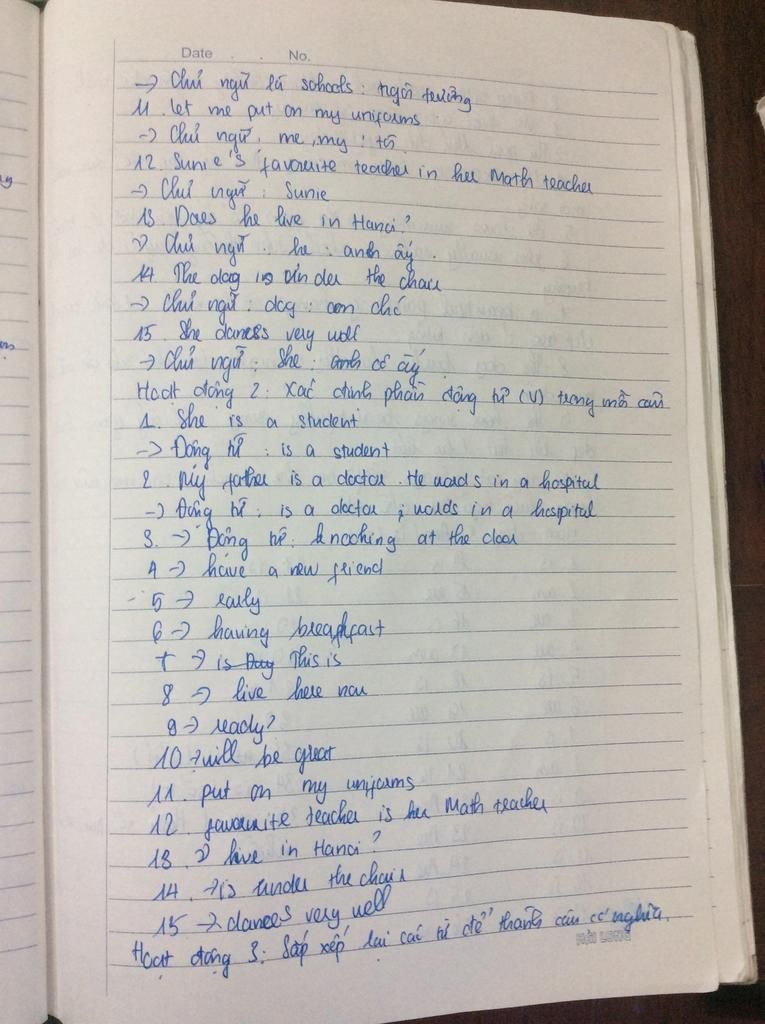 Date . . No.
-> Chủ ngữ là schools : ngôi trường
11. let me put on my uniforms
-> Chủ ngữ, me, my : tôi
12. Sunie's favourite teacher in her Math teacher
-> Chủ ngữ : Sunie
13. Does he live in Hanoi?
-> Chủ ngữ : he : anh ấy.
14 The dog is under the chair
-> Chủ ngữ : dog : con chó
15. She dances very well
-> Chủ ngữ : She : anh cô ấy
Hoạt động 2 : Xác định phần động từ (V) trong mỗi câu
1. She is a student
-> Động từ : is a student
2. My father is a doctor. He words in a hospital
-> Động từ : is a doctor ; words in a hospital
3. -> Động từ : knocking at the door
4 -> have a new friend
5 -> early
6 -> having breakfast
7 -> is Duy This is
8 -> live here now
9 -> ready?
10 -> will be great
11. put on my uniforms
12. favourite teacher is her Math teacher
13. -> live in Hanoi?
14. -> is under the chair
15 -> dances very well
Hoạt động 3 : Sắp xếp lại các từ để thành câu có nghĩa.
HẢI LONG